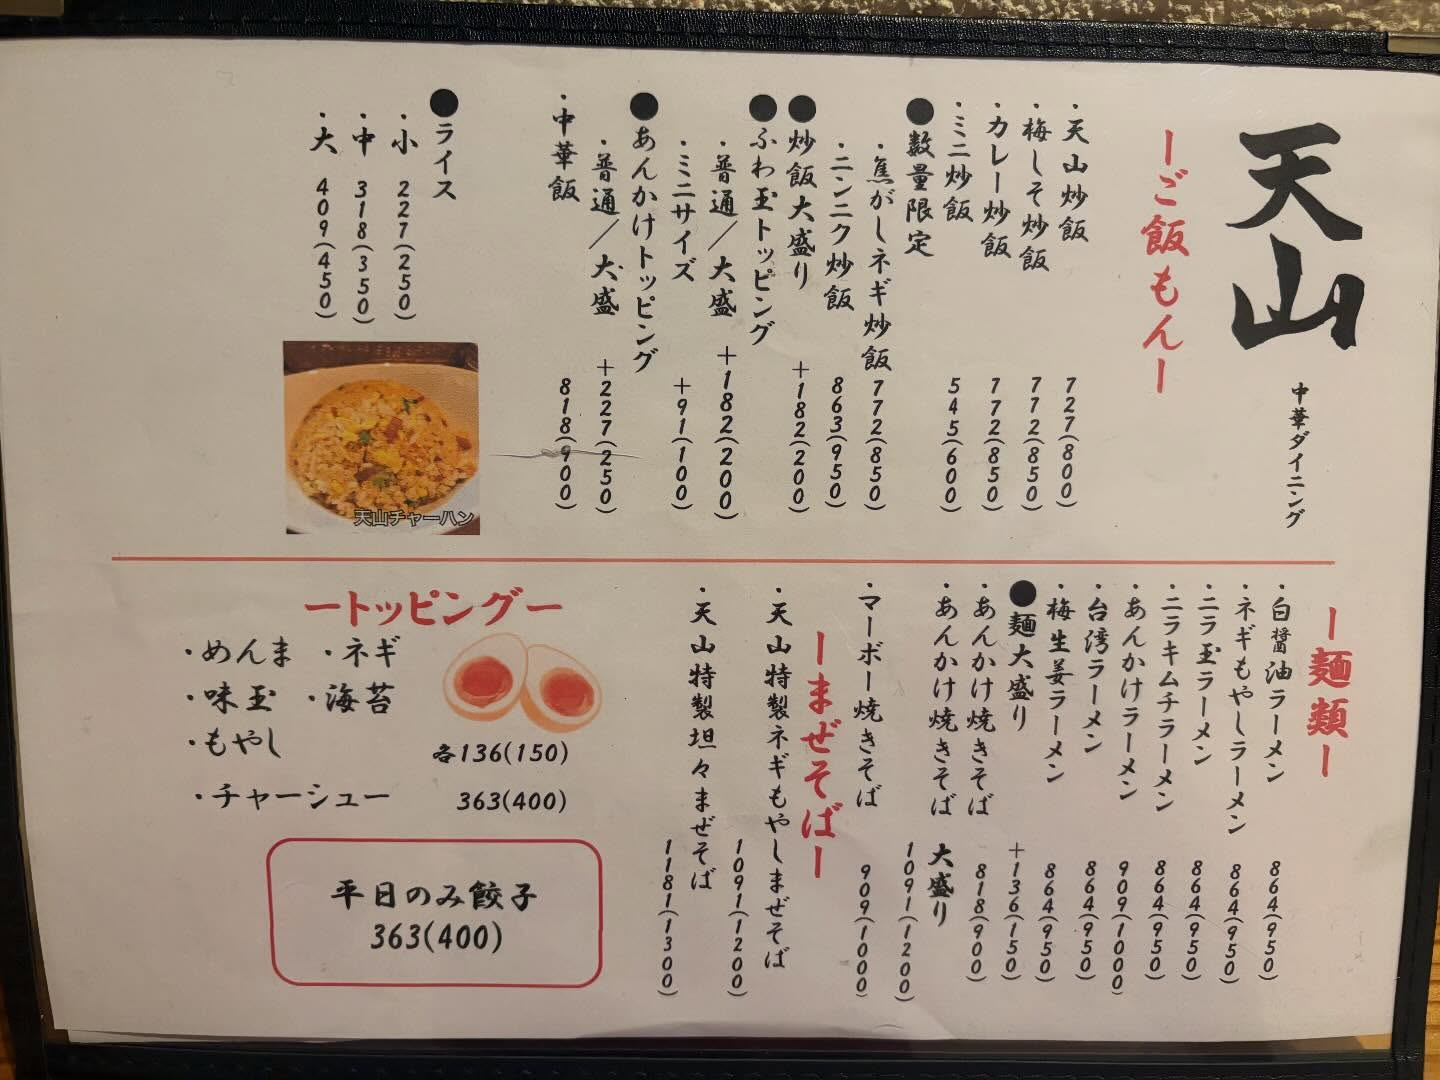 天山
中華ダイニング
ーご飯もんー
・天山炒飯 727(800)
・梅しそ炒飯 772(850)
・カレー炒飯 772(850)
・ミニ炒飯 545(600)
●数量限定
・焦がしネギ炒飯 772(850)
・ニンニク炒飯 863(950)
●炒飯大盛り +182(200)
●ふわ玉トッピング
・普通/大盛 +182(200)
・ミニサイズ +91(100)
●あんかけトッピング
・普通/大盛 +227(250)
・中華飯 818(900)
●ライス
・小 227(250)
・中 318(350)
・大 409(450)
天山チャーハン
ー麺類ー
・白醤油ラーメン 864(950)
・ネギもやしラーメン 864(950)
・ニラ玉ラーメン 864(950)
・ニラキムチラーメン 864(950)
・あんかけラーメン 909(1000)
・台湾ラーメン 864(950)
・梅生姜ラーメン 864(950)
●麺大盛り +136(150)
・あんかけ焼きそば 818(900)
・あんかけ焼きそば 大盛り 1091(1200)
・マーボー焼きそば 909(1000)
ーまぜそばー
・天山特製ネギもやしまぜそば 1091(1200)
・天山特製坦々まぜそば 1181(1300)
ートッピングー
・めんま ・ネギ
・味玉 ・海苔
・もやし 各136(150)
・チャーシュー 363(400)
平日のみ餃子
363(400)